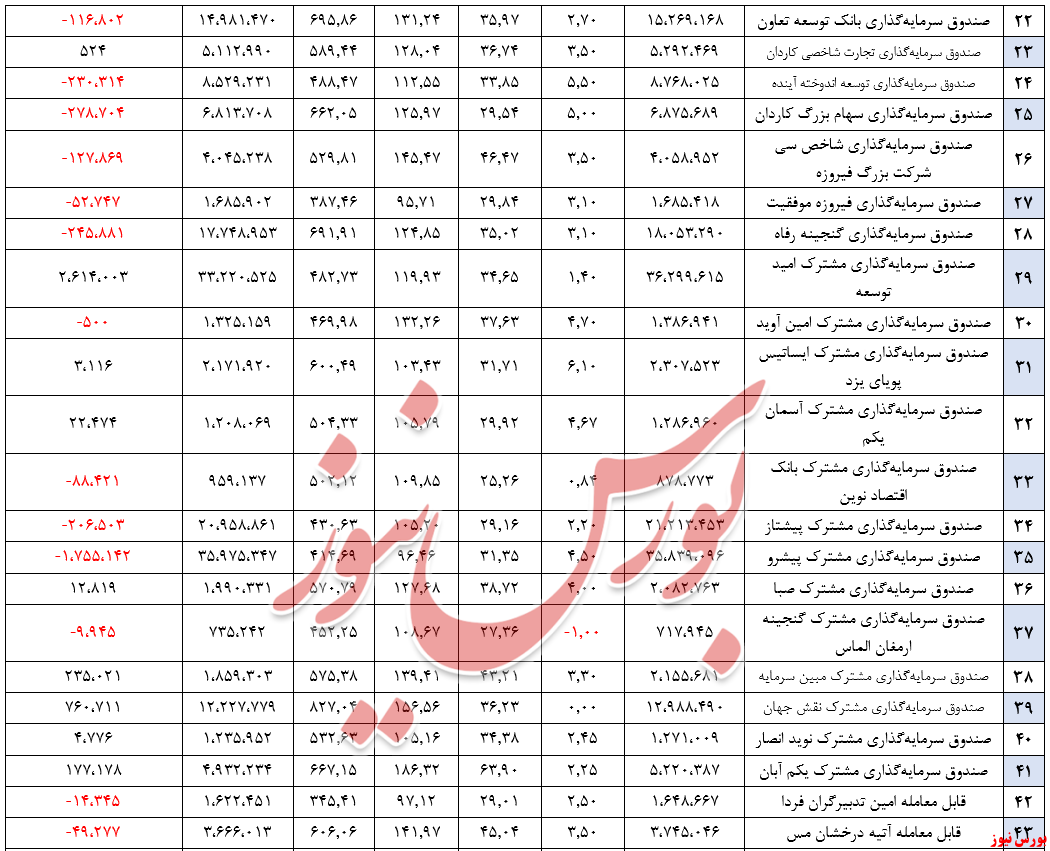 ۲۲ صندوق سرمایه‌گذاری بانک توسعه تعاون ۱۵،۲۶۹،۱۶۸ ۲,۷۰ ۳۵,۹۷ ۱۳۱,۲۴ ۶۹۵,۸۶ ۱۴،۹۸۱،۴۷۰ -۱۱۶،۸۰۲
۲۳ صندوق سرمایه‌گذاری تجارت شاخصی کاردان ۵،۲۹۲،۴۶۹ ۳,۵۰ ۳۶,۷۴ ۱۲۸,۰۴ ۵۸۹,۴۴ ۵،۱۱۲،۹۹۰ ۵۲۴
۲۴ صندوق سرمایه‌گذاری توسعه اندوخته آینده ۸،۷۶۸،۰۲۵ ۵,۵۰ ۳۳,۸۵ ۱۱۲,۵۵ ۴۸۸,۴۷ ۸،۵۲۹،۲۳۱ -۲۳۰،۳۱۴
۲۵ صندوق سرمایه‌گذاری سهام بزرگ کاردان ۶،۸۷۵،۶۸۹ ۵,۰۰ ۲۹,۵۴ ۱۲۵,۹۷ ۶۶۲,۰۵ ۶،۸۱۳،۷۰۸ -۲۷۸،۷۰۴
۲۶ صندوق سرمایه‌گذاری شاخص سی ۴،۰۵۸،۹۵۲ ۳,۵۰ ۴۶,۴۷ ۱۴۵,۴۷ ۵۲۹,۸۱ ۴،۰۴۵،۲۳۸ -۱۲۷،۸۶۹
شرکت بزرگ فیروزه
۲۷ صندوق سرمایه‌گذاری فیروزه موفقیت ۱،۶۸۵،۴۱۸ ۳,۱۰ ۲۹,۸۴ ۹۵,۷۱ ۳۸۷,۴۶ ۱،۶۸۵،۹۰۲ -۵۲،۷۴۷
۲۸ صندوق سرمایه‌گذاری گنجینه رفاه ۱۸،۰۵۳،۲۹۰ ۳,۱۰ ۳۵,۰۲ ۱۲۴,۸۵ ۶۹۱,۹۱ ۱۷،۷۴۸،۹۵۳ -۲۴۵،۸۸۱
۲۹ صندوق سرمایه‌گذاری مشترک امید ۳۶،۲۹۹،۶۱۵ ۱,۴۰ ۳۴,۶۵ ۱۱۹,۹۳ ۴۸۲,۷۳ ۳۳،۲۲۰،۵۲۵ ۲،۶۱۴،۰۰۳
توسعه
۳۰ صندوق سرمایه‌گذاری مشترک امین آوید ۱،۳۸۶،۹۴۱ ۴,۷۰ ۳۷,۶۳ ۱۳۲,۲۶ ۴۶۹,۹۸ ۱،۳۲۵،۱۵۹ -۵۰۰
۳۱ صندوق سرمایه‌گذاری مشترک ایساتیس ۲،۳۰۷،۵۲۳ ۶,۱۰ ۳۱,۷۱ ۱۰۳,۴۳ ۶۰۰,۴۹ ۲،۱۷۱،۹۲۰ ۳،۱۱۶
پویای یزد
۳۲ صندوق سرمایه‌گذاری مشترک آسمان ۱،۲۸۶،۹۶۰ ۴,۶۷ ۲۹,۹۲ ۱۰۵,۷۹ ۵۰۴,۳۳ ۱،۲۰۸،۰۶۹ ۲۲،۴۷۴
یکم
۳۳ صندوق سرمایه‌گذاری مشترک بانک ۸۷۸،۷۷۳ ۰,۸۴ ۲۵,۲۶ ۱۰۹,۸۵ ۵۰۲,۱۲ ۹۵۹،۱۳۷ -۸۸،۴۲۱
اقتصاد نوین
۳۴ صندوق سرمایه‌گذاری مشترک پیشتاز ۲۱،۲۱۳،۴۵۳ ۲,۲۰ ۲۹,۱۶ ۱۰۵,۲۰ ۴۳۰,۶۳ ۲۰،۹۵۸،۸۶۱ -۲۰۶،۵۰۳
۳۵ صندوق سرمایه‌گذاری مشترک پیشرو ۳۵،۸۳۹،۰۹۶ ۴,۵۰ ۳۱,۳۵ ۹۶,۴۶ ۴۱۴,۶۹ ۳۵،۹۷۵،۳۴۷ -۱،۷۵۵،۱۴۲
۳۶ صندوق سرمایه‌گذاری مشترک صبا ۲،۰۸۲،۷۶۳ ۴,۰۰ ۳۸,۷۲ ۱۲۷,۶۸ ۵۷۰,۷۹ ۱،۹۹۰،۳۳۱ ۱۲،۸۱۹
۳۷ صندوق سرمایه‌گذاری مشترک گنجینه ۷۱۷،۹۴۵ -۱,۰۰ ۲۷,۳۶ ۱۰۸,۶۷ ۴۵۲,۲۵ ۷۳۵،۲۴۲ -۹،۹۴۵
ارمغان الماس
۳۸ صندوق سرمایه‌گذاری مشترک مبین سرمایه ۲،۱۵۵،۶۸۱ ۳,۳۰ ۴۳,۲۱ ۱۳۹,۴۱ ۵۷۵,۳۸ ۱،۸۵۹،۳۰۳ ۲۳۵،۰۲۱
۳۹ صندوق سرمایه‌گذاری مشترک نقش جهان ۱۲،۹۸۸،۴۹۰ ۰,۰۰ ۳۶,۲۳ ۱۵۶,۵۶ ۸۲۷,۰۴ ۱۲،۲۲۷،۷۷۹ ۷۶۰،۷۱۱
۴۰ صندوق سرمایه‌گذاری مشترک نوید انصار ۱،۲۷۱،۰۰۹ ۲,۴۵ ۳۴,۳۸ ۱۰۵,۱۶ ۵۳۲,۶۳ ۱،۲۳۵،۹۵۲ ۴،۷۷۶
۴۱ صندوق سرمایه‌گذاری مشترک یکم آبان ۵،۲۲۰،۳۸۷ ۲,۲۵ ۶۳,۹۰ ۱۸۶,۳۲ ۶۶۷,۱۵ ۴،۹۳۲،۲۳۴ ۱۷۷،۱۷۸
۴۲ قابل معامله امین تدبیرگران فردا ۱،۶۴۸،۶۶۷ ۲,۵۰ ۲۹,۰۱ ۹۷,۱۲ ۳۴۵,۴۱ ۱،۶۲۲،۴۵۱ -۱۴،۳۴۵
۴۳ قابل معامله آتیه درخشان مس ۳،۷۴۵،۰۴۶ ۳,۵۰ ۴۵,۰۴ ۱۴۱,۹۷ ۶۰۶,۰۶ ۳،۶۶۶،۰۱۳ -۴۹،۲۷۷
بورس نیوز
بورس نیوز